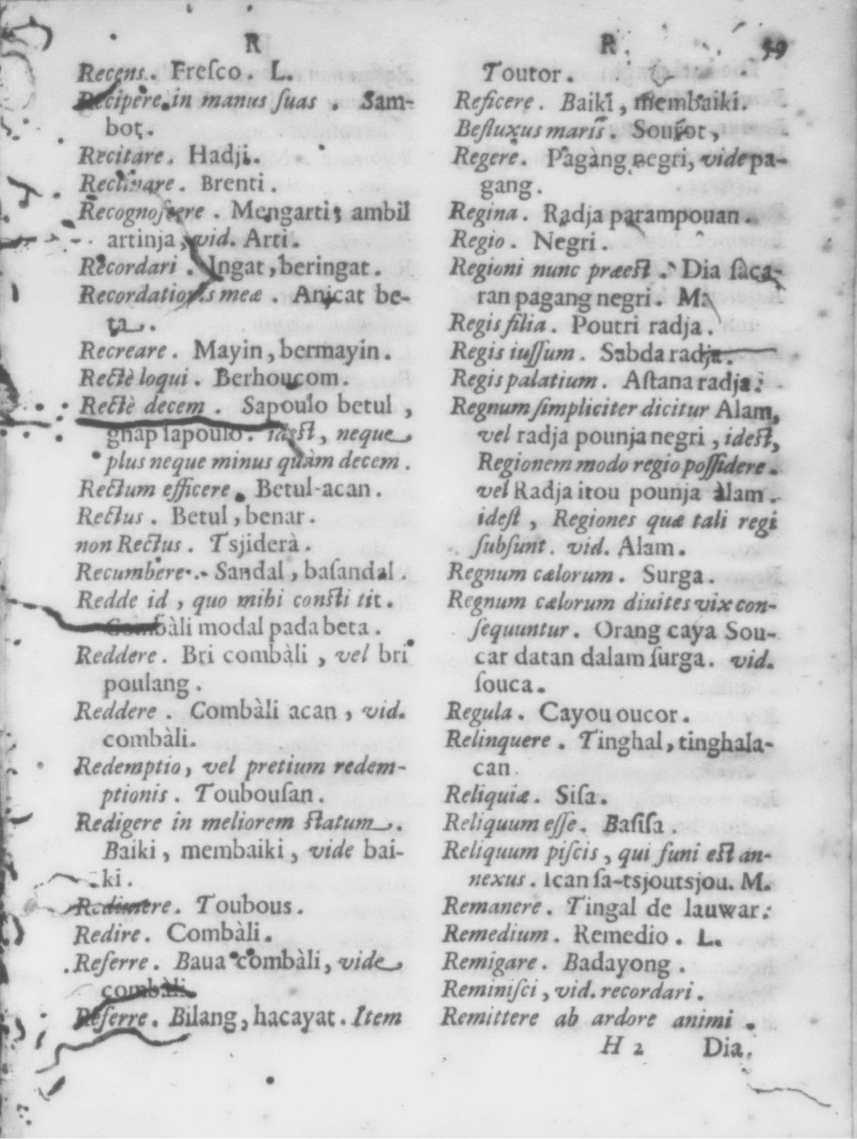 R
Recens. Fresco. L.
Recipere in manus suas. Sam-
bot.
Recitare. Hadji.
Reclinare. Brenti.
Recognoscere. Mengarti; ambil
artinja, vid. Arti.
Recordari. Ingat, beringat.
Recordationis meæ. Anicat be-
ta.
Recreare. Mayin, bermayin.
Rectè loqui. Berhoucom.
Rectè decem. Sapoulo betul,
gnap sapoulo. idest, neque
plus neque minus quàm decem.
Rectum efficere. Betul-acan.
Rectus. Betul, benar.
non Rectus. Tsjiderà.
Recumbere. Sandal, basandal.
Redde id, quo mihi consti tit.
Combàli modal pada beta.
Reddere. Bri combàli, vel bri
poulang.
Reddere. Combàli acan, vid.
combàli.
Redemptio, vel pretium redem-
ptionis. Toubousan.
Redigere in meliorem statum.
Baiki, membaiki, vide bai-
ki.
Redimere. Toubous.
Redire. Combàli.
Referre. Baua combàli, vide
combàli.
Referre. Bilang, hacayat. Item
R. 59
Toutor.
Reficere. Baiki, membaiki.
Refluxus maris.
Regere. Pagàng negri, vide pa-
gang.
Regina. Radja parampouan.
Regio. Negri.
Regioni nunc præest. Dia saca-
ran pagang negri. M.
Regis filia. Poutri radja.
Regis iussum. Sabda radja.
Regis palatium. Astana radja.
Regnum simpliciter dicitur Alam,
vel radja pounja negri, idest,
Regionem modo regio possidere.
vel Radja itou pounja àlam.
idest, Regiones quæ tali regi
subsunt. vid. Alam.
Regnum cælorum. Surga.
Regnum cælorum diuites vix con-
sequuntur. Orang caya Sou-
car datan dalam surga. vid.
souca.
Regula. Cayou oucor.
Relinquere. Tinghal, tinghala-
can
Reliquiæ. Sisa.
Reliquum esse. Basisa.
Reliquum piscis, qui funi est an-
nexus. Ican sa-tsjoutsjou. M.
Remanere. Tingal de lauwar.
Remedium. Remedio. L.
Remigare. Badayong.
Reminisci, vid. recordari.
Remittere ab ardore animi.
H 2 Dia.